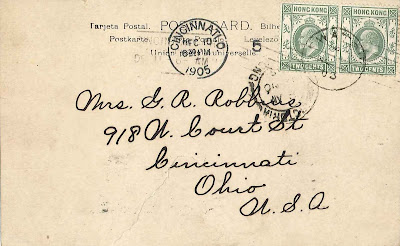 Tarjeta Postal. POST CARD.
Postkarte.
Union postale universelle.
CINCINNATI, O.
DEC 10
AM
1905
5
HONG KONG
TWO CENTS
HONG KONG
TWO CENTS
Mrs. G. R. Robbins
918 W. Court St
Cincinnati
Ohio
U.S.A